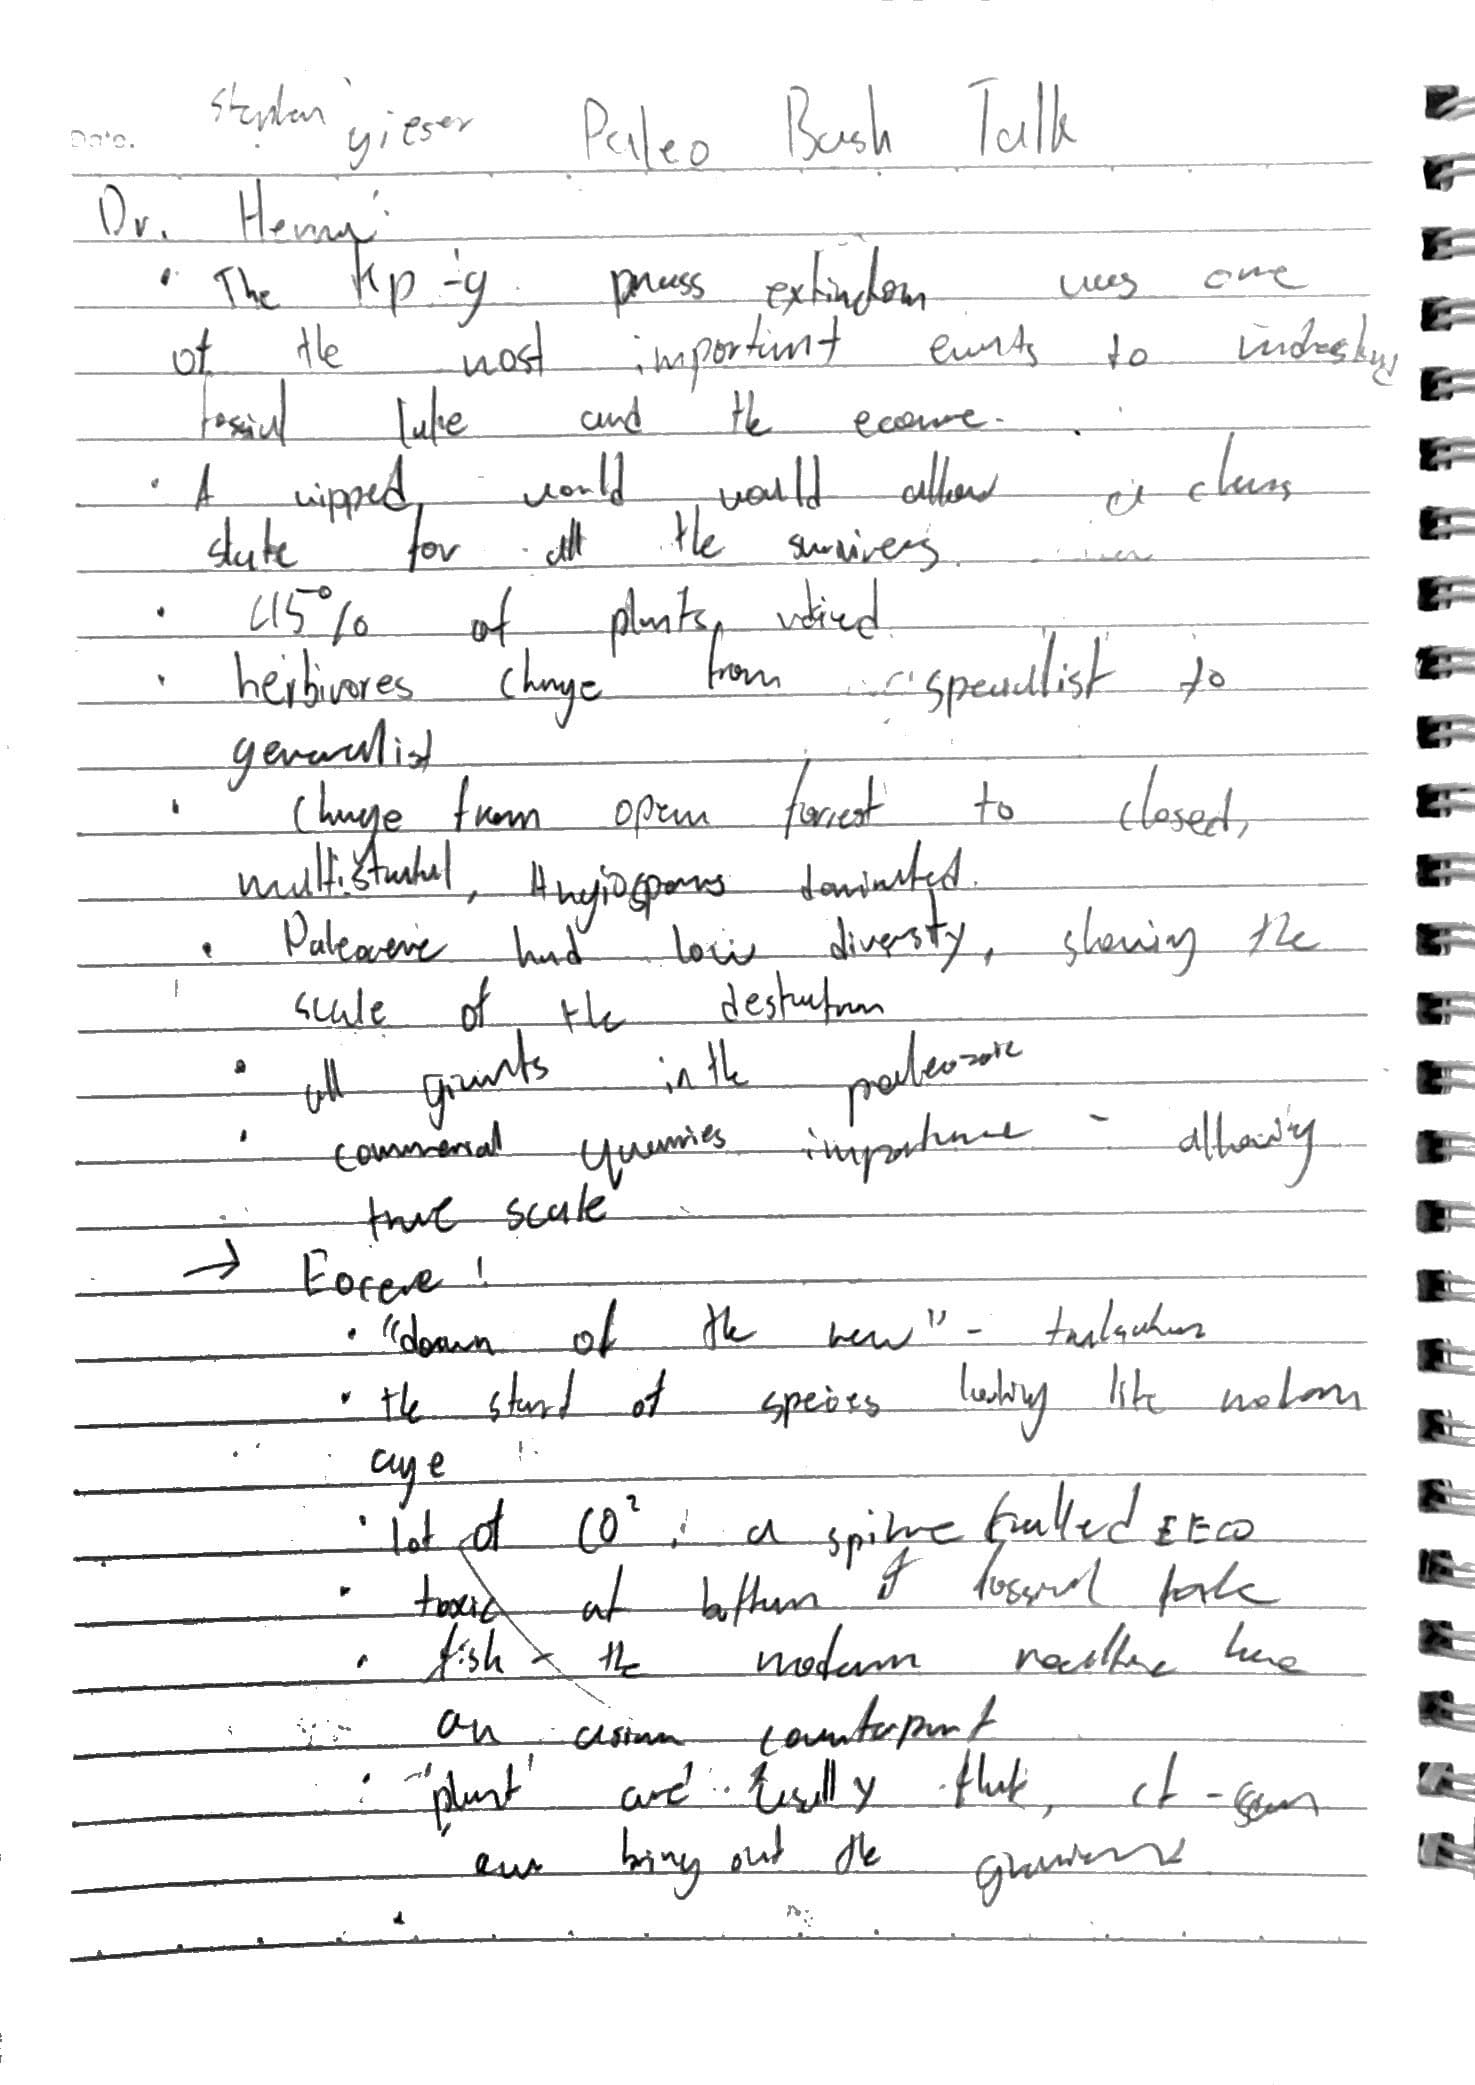 Date. stephen gieser Paleo Bash Talk
Dr. Henry:
· The Kp-g mass extinction was one
of the most important events to
fossil lake and the eocene.
· A wipped world would allow a clean
slate for all the survivers.
· 45% of plants
· herbivores change from specallist to
generallist
· Change from open forrest to closed,
Angiosperms dominated.
· Paleocene had low diversity, showing the
scale of the destruction
· all giants in the paleozoic
· commercial quarries importance - allowing
true scale
→ Eocene!
· "dawn of the new" -
· the start of species looking like modern
age
· lot of CO², a spike called EECO
· toxic at bottom of fossil lake
· fish - the modern have
an asian counterpart
· "plant" are that, ct-scan
bring out the